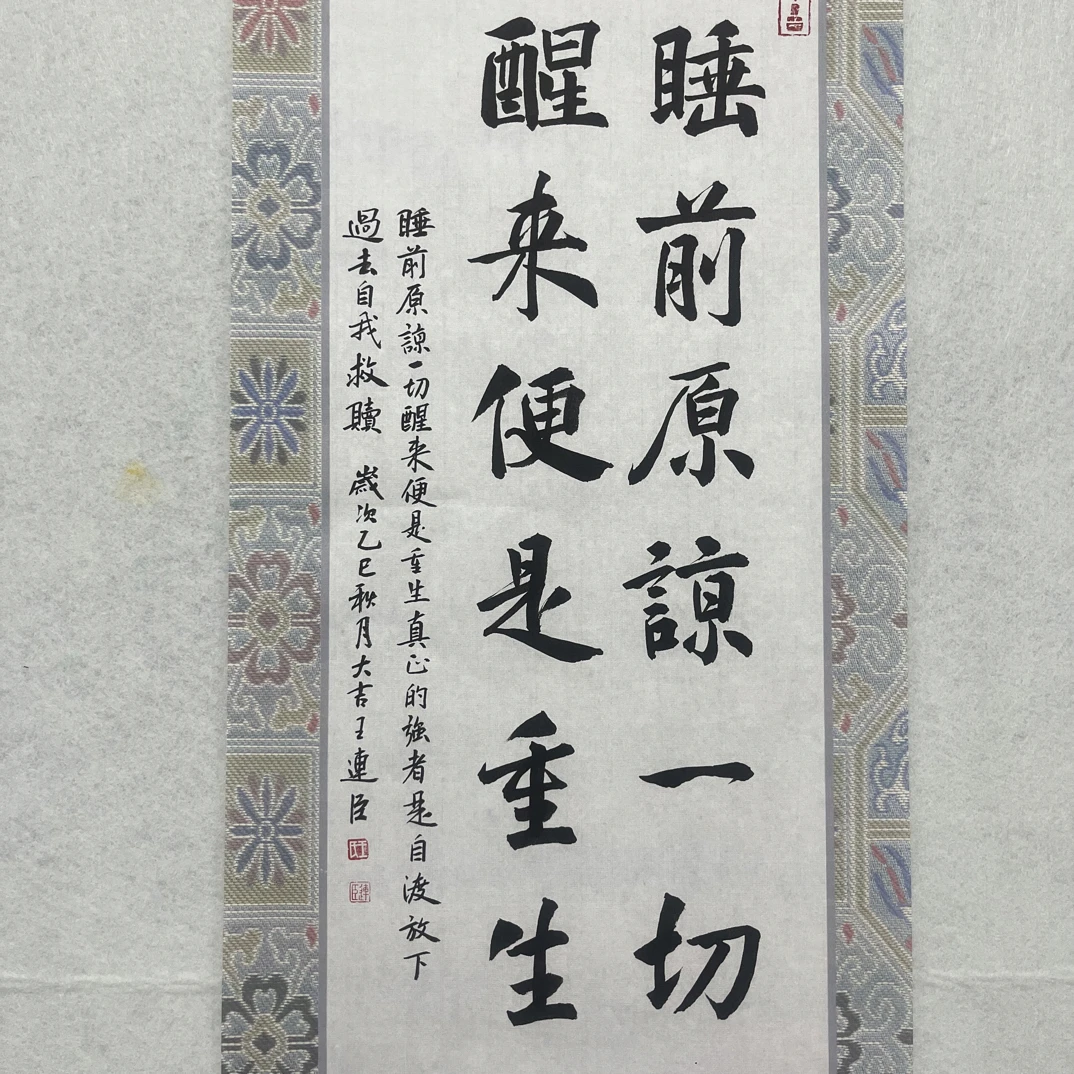 睡前原諒一切
醒来便是重生
睡前原諒一切醒来便是重生真正的強者是自渡放下
過去自我救贖 歲次乙巳秋月大吉王連臣